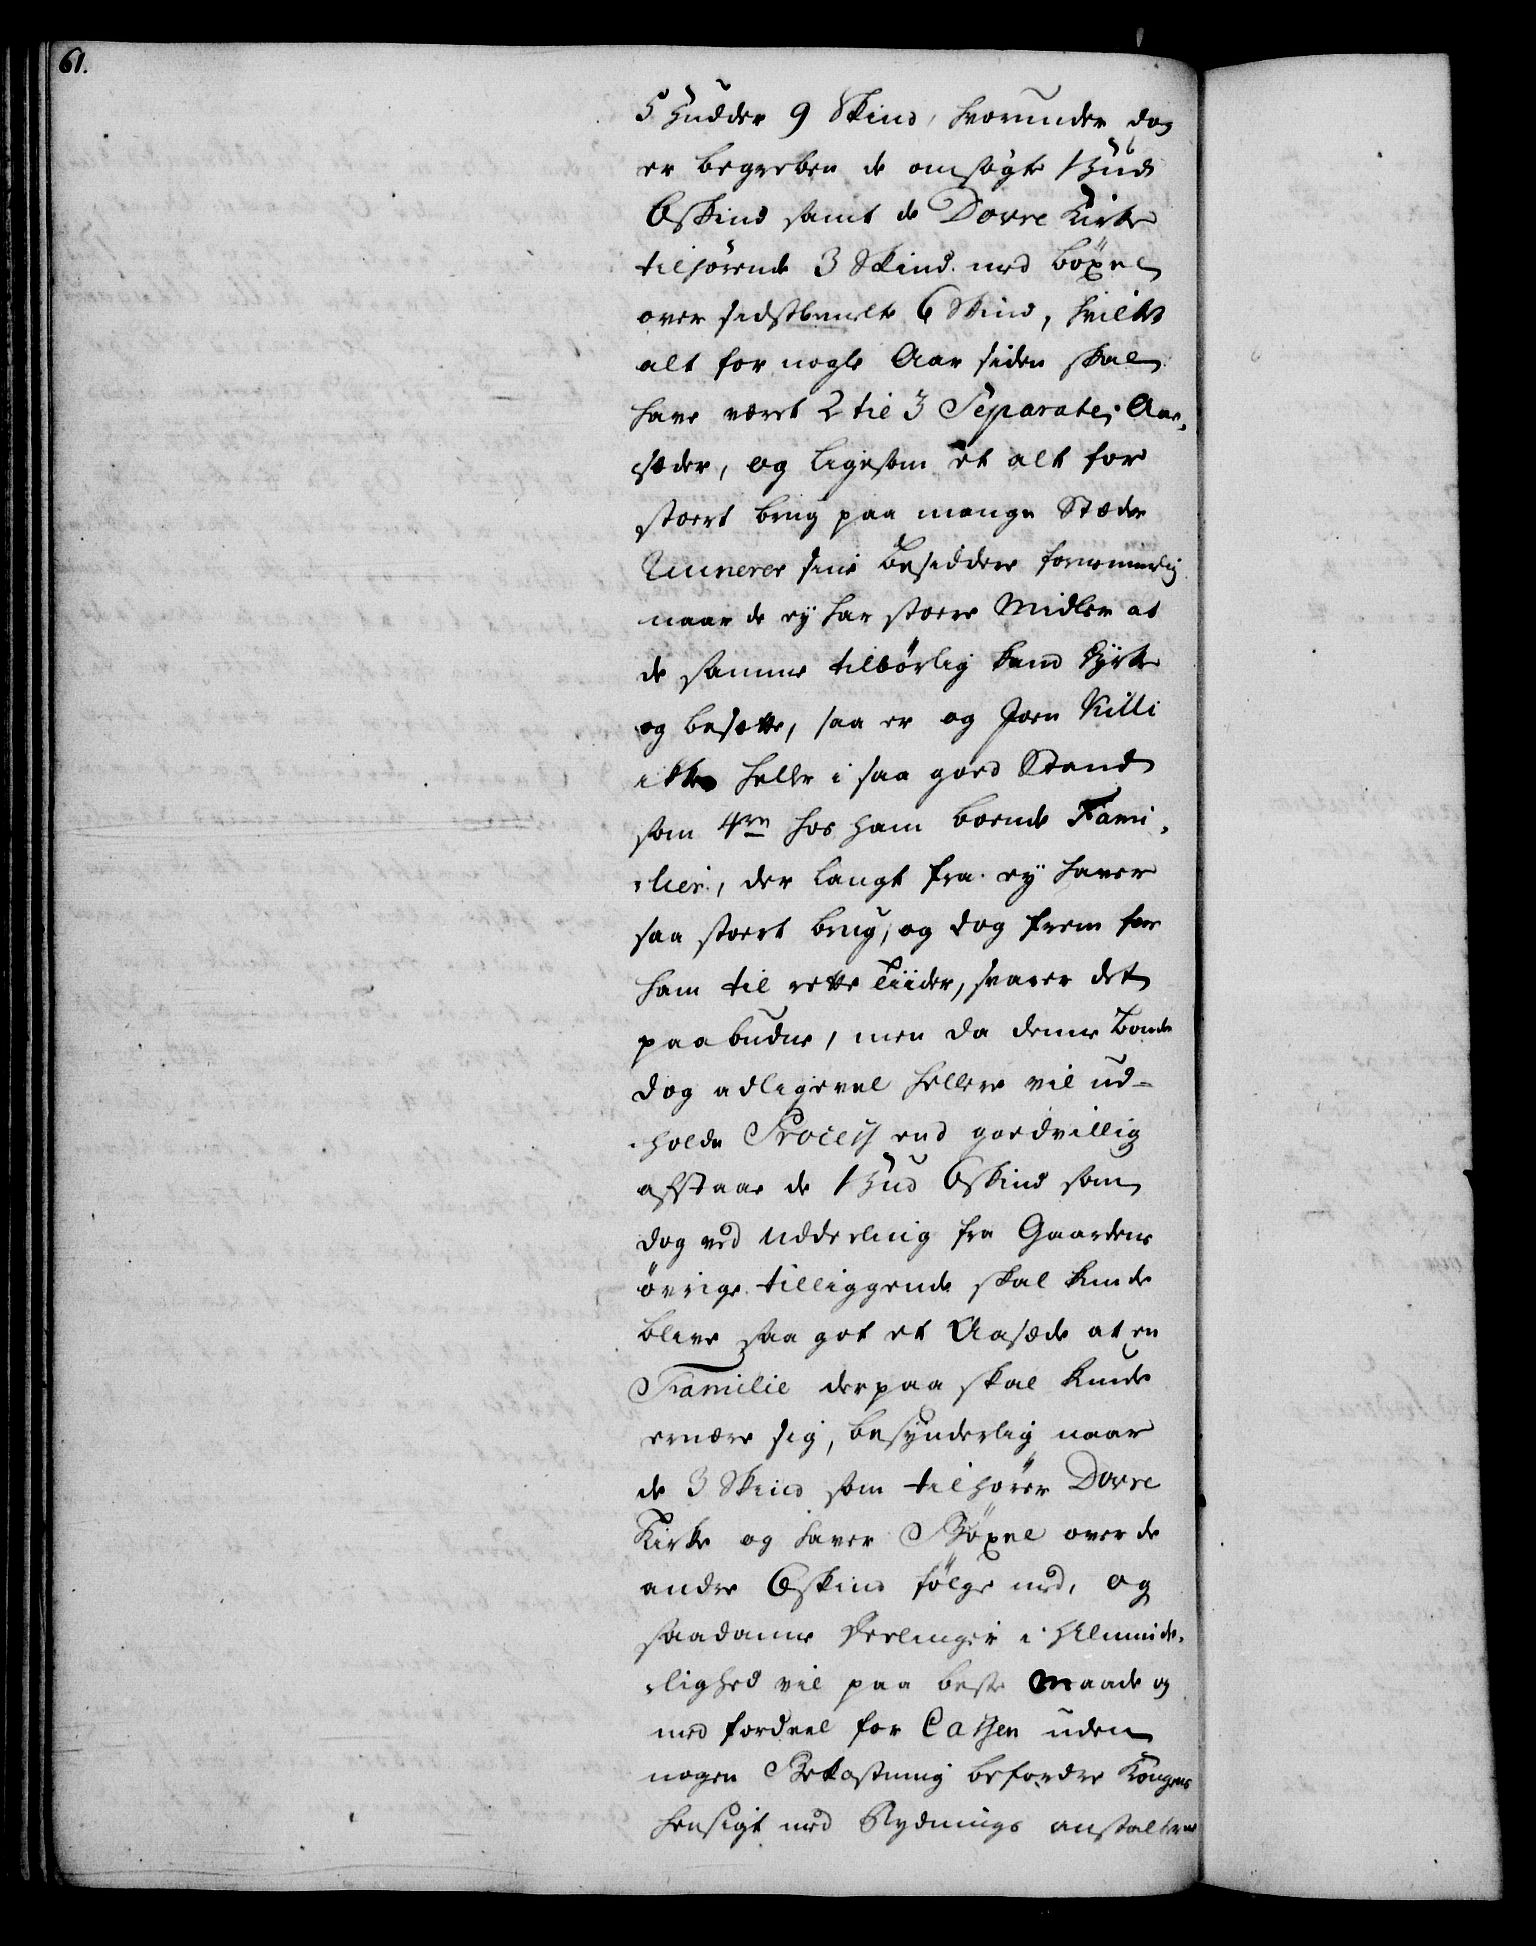 61.
5 Hudder 9 Skind, hvorunder dog
er begreben de omsøgte 1 Hud
6 Skind samt de Dovre Kirke
tilhørende 3 Skind med böxel
over sidstbemelte 6 Skind, hvilket
alt for nogle Aar siden skal
have været 2 til 3 Separate Aae-
sæder, og ligesom et alt for
stoert brug paa mange Stæder
Ruinerer sine Besiddere fornemmelig
naar de ey har stoere Midler at
de samme tilbörlig kand dyrke
og besætte, saa er og Joen Killi
ikke heller i saa goed Stand
som 4re hos ham boende Fami-
-lier, der langt fra ey haver
saa stoert brug, og dog frem for
ham til rette Tiider, svarer det
paabudne, men da denne Bonde
dog adligevel hellere vil ud-
-holde Process end goedvillig
afstaae de 1 Hud 6 Skind som
dog ved Uddeeling fra Gaardens
övrige tilliggende skal kunde
blive saa got et Aasæde at en
Familie derpaa skal kunde
ernære sig, besynderlig naar
de 3 Skind som tilhörer Dovre
Kirke og haver Böxel over de
andre 6 Skind fölge med, og
saadanne Deelinger i Alminde-
-lighed vil paa beste Maade og
med fordeel for Cassen uden
nogen Bekostning befordre Kongens
hensigt med Rydnings anstalterne